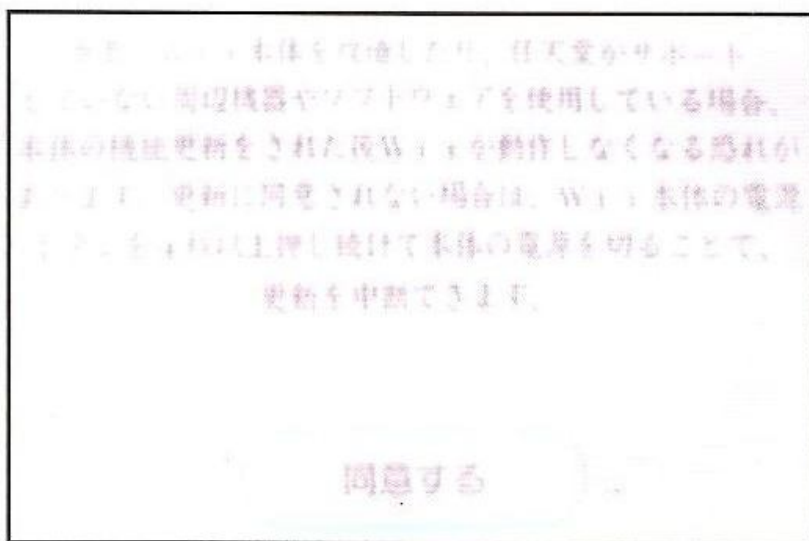 本体を改造したり、任天堂がサポート
していない周辺機器やソフトウェアを使用している場合、
本体の機能更新をされた後Wiiが動作しなくなる恐れが
あります。更新に同意されない場合は、Wii本体の電源
を4秒以上押し続けて本体の電源を切ることで、
更新を中断できます。
同意する